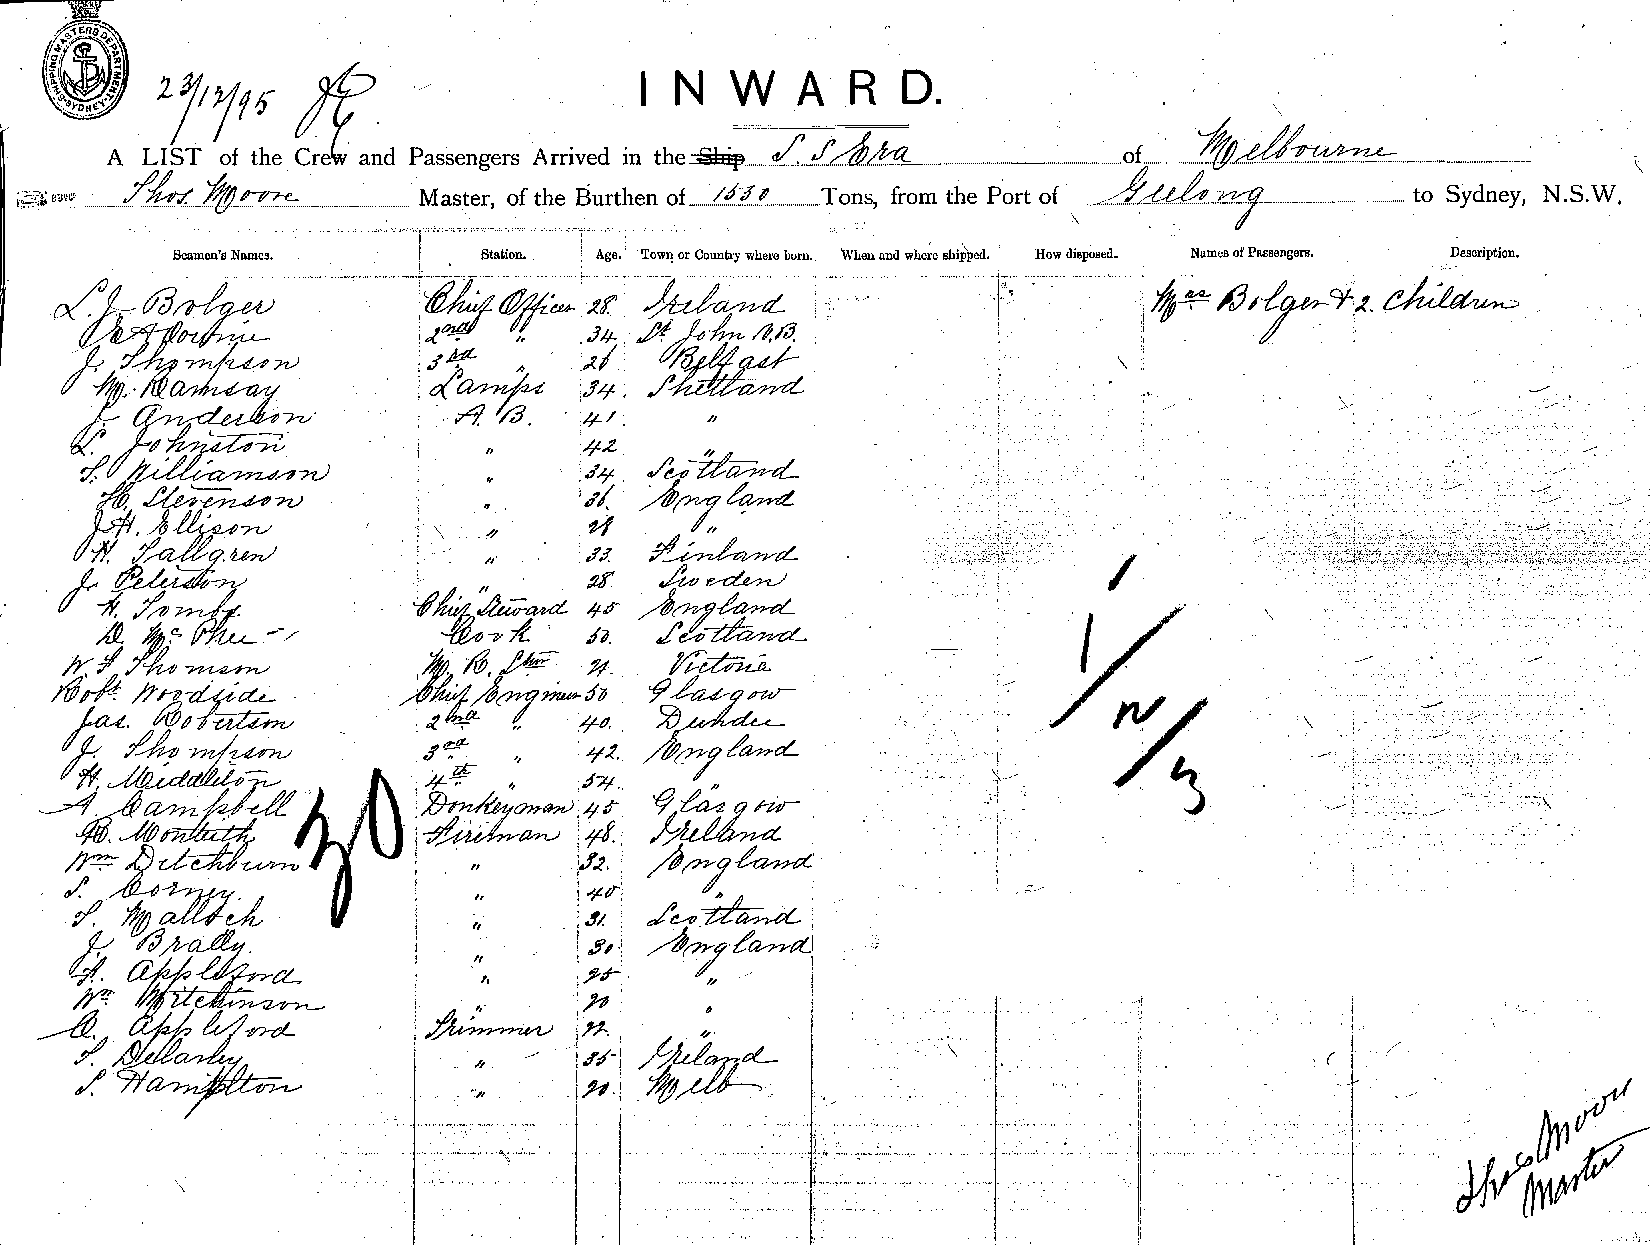 SHIPPING MASTERS DEPARTMENT SYDNEY
23/12/95
INWARD.
A LIST of the Crew and Passengers Arrived in the Ship S. S Era of Melbourne
Thos. Moore Master, of the Burthen of 1530 Tons, from the Port of Geelong to Sydney, N.S.W.
Seamen's Names. Station. Age. Town or Country where born. When and where shipped. How disposed. Names of Passengers. Description.
L. J. Bolger Chief Officer 28. Ireland Mrs Bolger & 2. Children
2nd " 34. St John N.B.
J. Thompson 3rd " 26 Belfast
M. Ramsay Lamps 34. Shetland
J. Anderson A. B. 41. "
L. Johnston " 42 "
T. Williamson " 34 Scotland
Stevenson " 36. England
J. H. Ellison " 28 "
H. Tallgren " 33. Finland
J. Peterson " 28. Sweden
H. Chief Steward 45 England
D. McPhee Cook 50. Scotland
W. T. Thomson M. R. 21. Victoria
Robt. Woodside Chief Engineer 50 Glasgow
Jas. Robertson 2nd " 40. Dundee
J. Thompson 3rd " 42. England
H. Middleton 4th " 54. "
A Campbell Donkeyman 45 Glasgow
R. Monteith Fireman 48. Ireland
Wm Ditchburn " 32. England
S. Corney. " 40 "
T. Malloch " 31. Scotland
J. Brally. " 30 England
A. Appleford " 25 "
Wm Mitchinson " 20 "
Appleford Trimmer 22. "
T. Delaney " 35 Ireland
S. Hamilton " 20. Melb
30
Thos Moore
Master